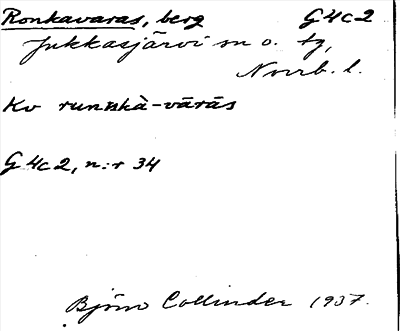 Ronkavaras, berg G4c2
Jukkasjärvi sn o. tg,
Norrb. l.
Kv runskà-vārās
G4c2, n:r 34
Björn Collinder 1937.